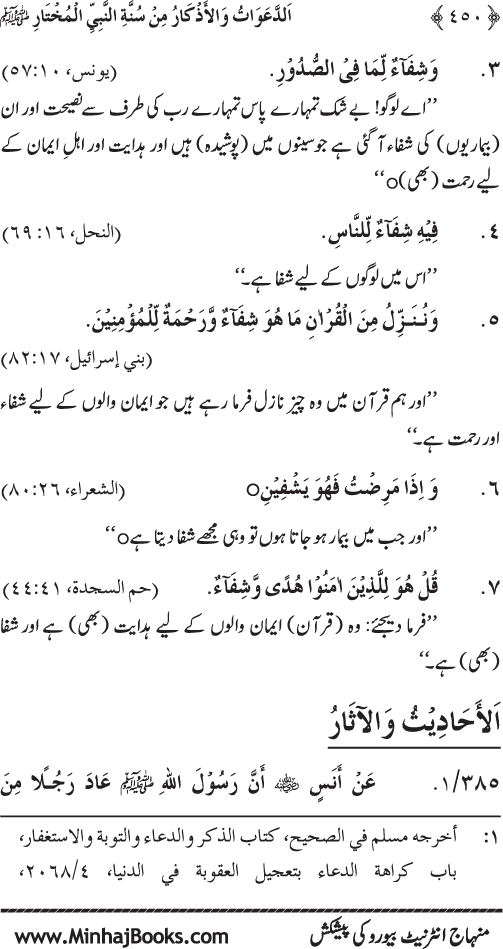 ﴿ ٤٥٠ ﴾ اَلدَّعَوَاتُ وَالْأَذْكَارُ مِنْ سُنَّةِ النَّبِيِّ الْمُخْتَارِ ﷺ
٣. وَشِفَآءٌ لِّمَا فِی الصُّدُوْرِ. (يونس، ١٠:٥٧)
’’اے لوگو! بے شک تمہارے پاس تمہارے رب کی طرف سے نصیحت اور ان
(بیماریوں) کی شفاء آ گئی ہے جو سینوں میں (پوشیدہ) ہیں اور ہدایت اور اہلِ ایمان کے
لیے رحمت (بھی)o‘‘
٤. فِيْهِ شِفَآءٌ لِّلنَّاسِ. (النحل، ١٦:٦٩)
’’اس میں لوگوں کے لیے شفا ہے۔‘‘
٥. وَنُنَزِّلُ مِنَ الْقُرْاٰنِ مَا هُوَ شِفَآءٌ وَّرَحْمَةٌ لِّلْمُؤْمِنِيْنَ.
(بني إسرائيل، ١٧:٨٢)
’’اور ہم قرآن میں وہ چیز نازل فرما رہے ہیں جو ایمان والوں کے لیے شفاء
اور رحمت ہے۔‘‘
٦. وَ اِذَا مَرِضْتُ فَهُوَ يَشْفِيْنِo (الشعراء، ٢٦:٨٠)
’’اور جب میں بیمار ہو جاتا ہوں تو وہی مجھے شفا دیتا ہےo‘‘
٧. قُلْ هُوَ لِلَّذِيْنَ اٰمَنُوْا هُدًی وَّشِفَآءٌ. (حم السجدة، ٤١:٤٤)
’’فرما دیجئے: وہ (قرآن) ایمان والوں کے لیے ہدایت (بھی) ہے اور شفا
(بھی) ہے۔‘‘
اَلْأَحَادِيْثُ وَالْآثَارُ
٣٨٥/١. عَنْ أَنَسٍ رضی الله عنه أَنَّ رَسُوْلَ اللهِ ﷺ عَادَ رَجُلًا مِنَ
١: أخرجه مسلم في الصحيح، كتاب الذكر والدعاء والتوبة والاستغفار،
باب كراهة الدعاء بتعجيل العقوبة في الدنيا، ٤/٢٠٦٨،
منہاج انٹرنیٹ بیورو کی پیشکش www.MinhajBooks.com